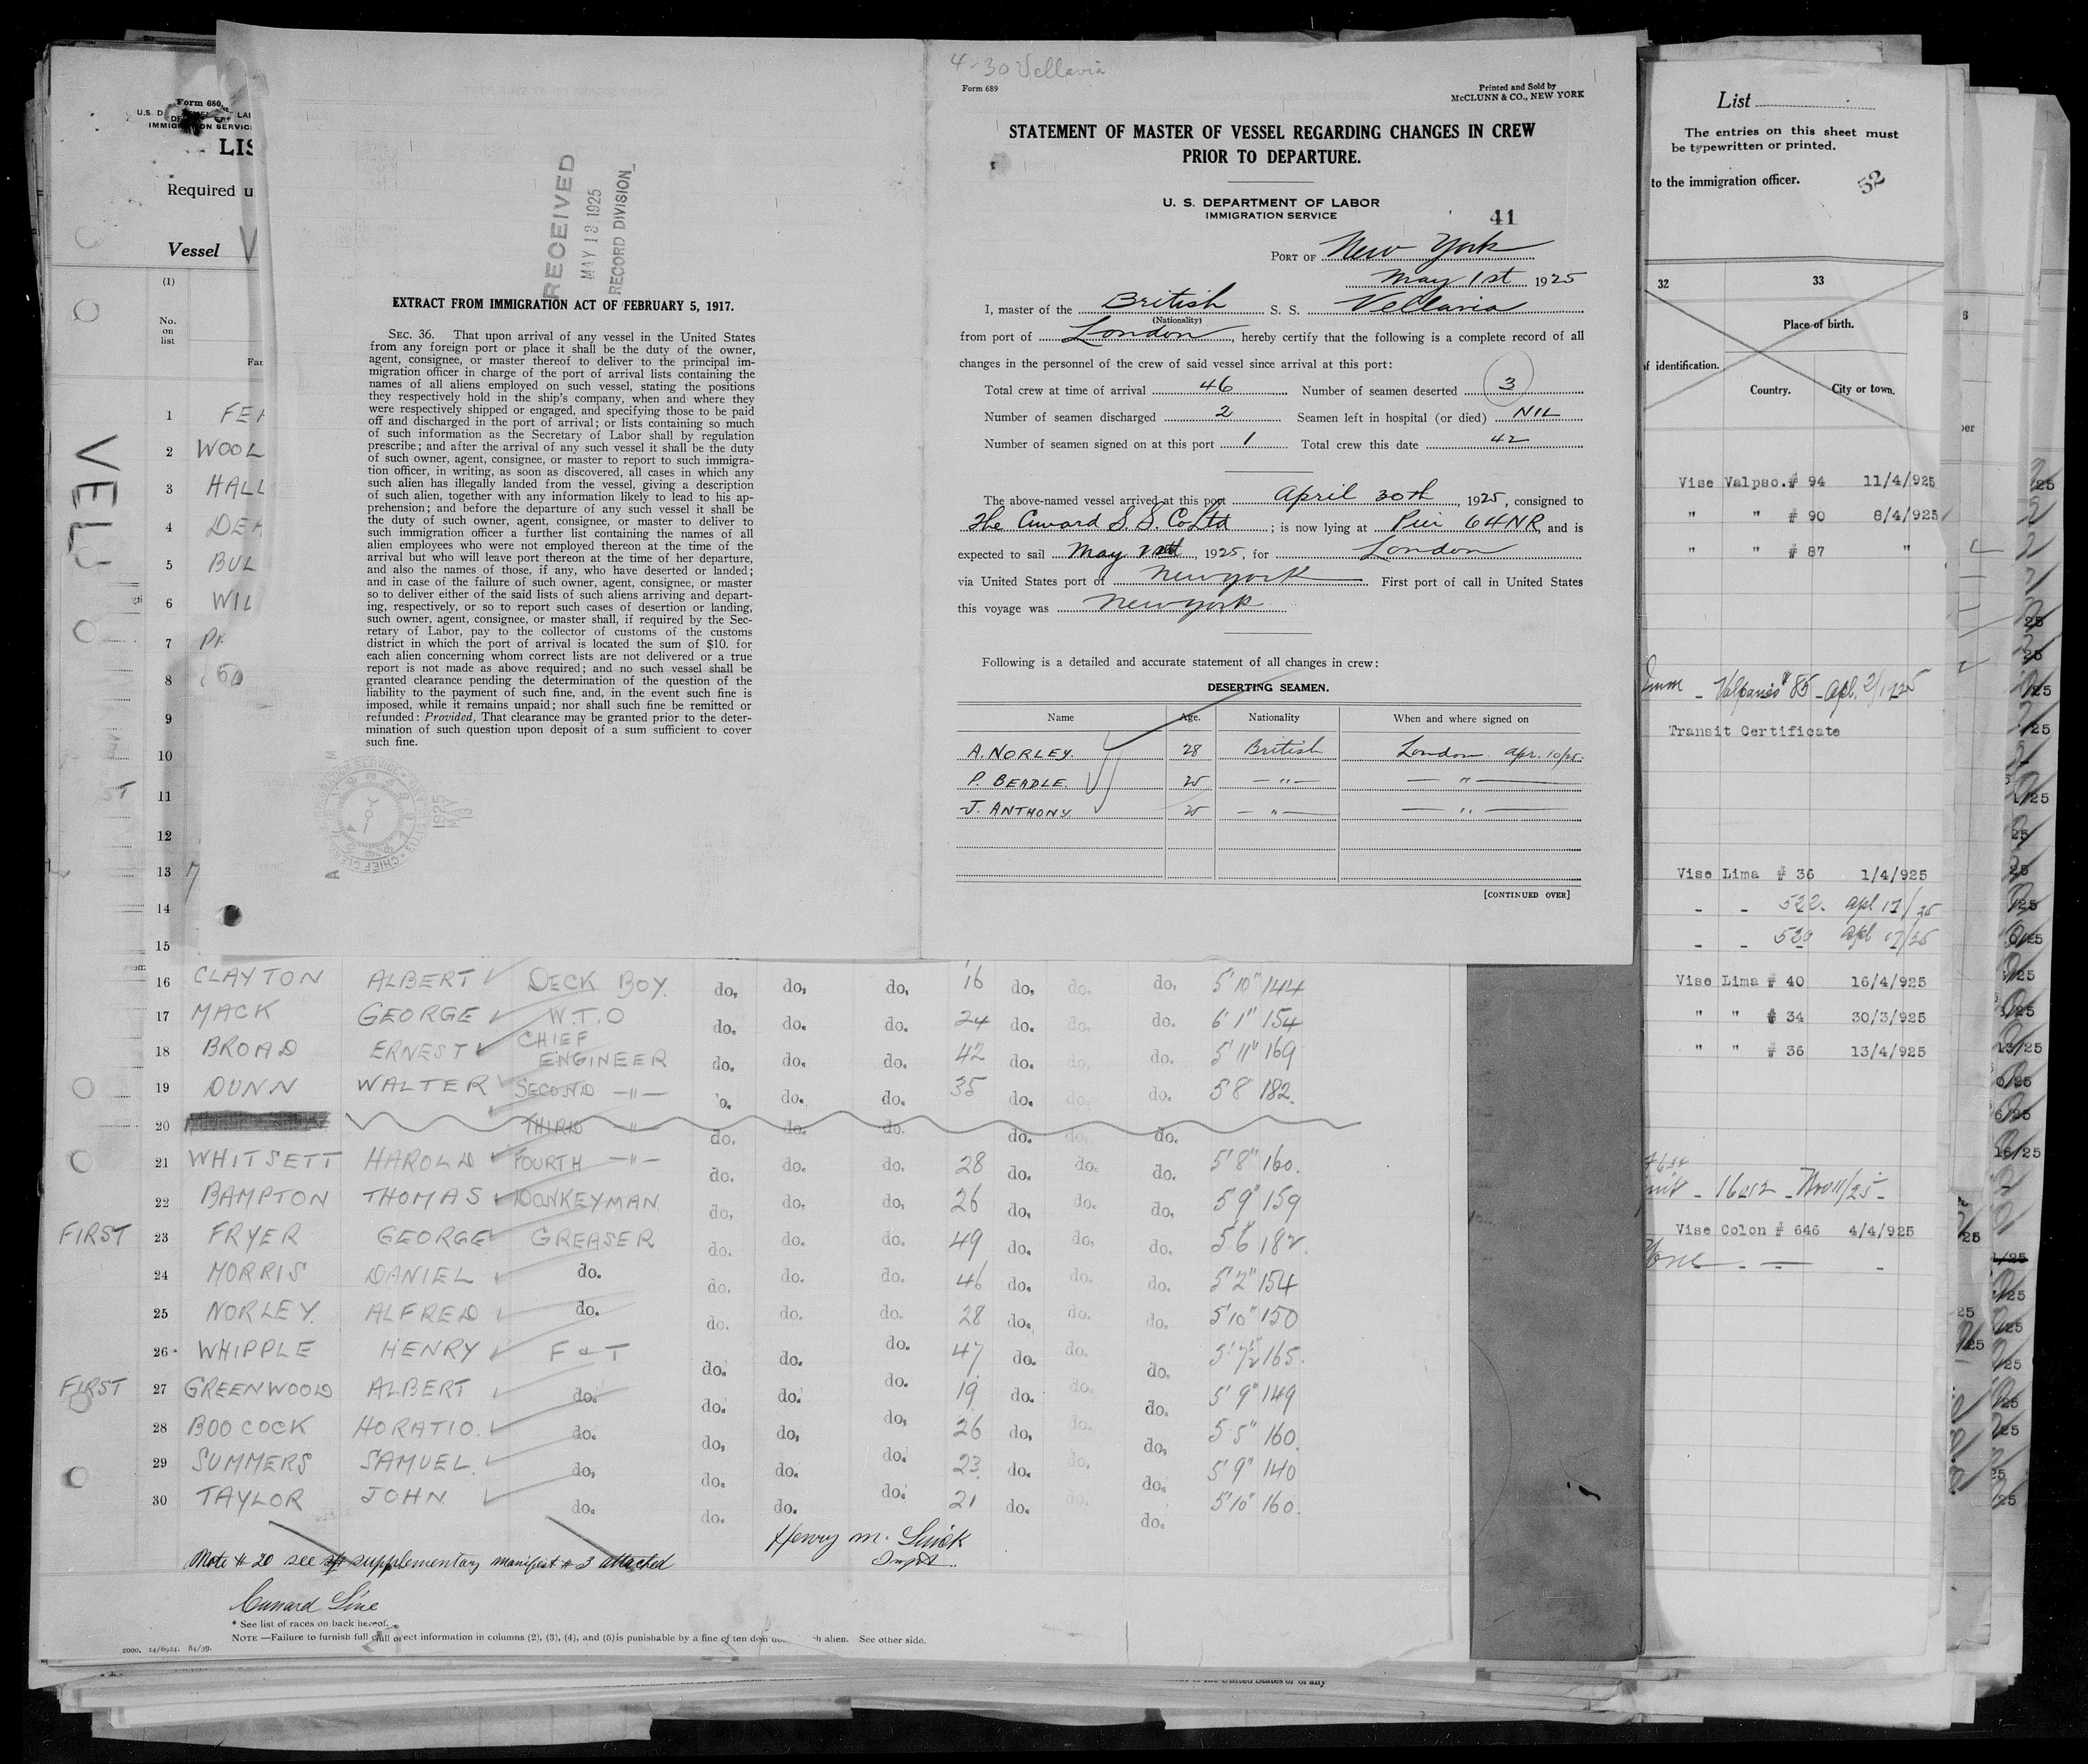 Form 680
U. S. D
IMMIGRATION SERVICE
LIS
Required u
Vessel V
(1)
No.
on
list
Fam
VELL
1 FEA
2 WOOL
3 HALL
4 DEA
5 BUL
6 WIL
7
8
9
10
11
12
13
14
15
RECEIVED
MAY 13 1925
RECORD DIVISION
EXTRACT FROM IMMIGRATION ACT OF FEBRUARY 5, 1917.
SEC. 36. That upon arrival of any vessel in the United States
from any foreign port or place it shall be the duty of the owner,
agent, consignee, or master thereof to deliver to the principal im-
migration officer in charge of the port of arrival lists containing the
names of all aliens employed on such vessel, stating the positions
they respectively hold in the ship's company, when and where they
were respectively shipped or engaged, and specifying those to be paid
off and discharged in the port of arrival; or lists containing so much
of such information as the Secretary of Labor shall by regulation
prescribe; and after the arrival of any such vessel it shall be the duty
of such owner, agent, consignee, or master to report to such immigra-
tion officer, in writing, as soon as discovered, all cases in which any
such alien has illegally landed from the vessel, giving a description
of such alien, together with any information likely to lead to his ap-
prehension; and before the departure of any such vessel it shall be
the duty of such owner, agent, consignee, or master to deliver to
such immigration officer a further list containing the names of all
alien employees who were not employed thereon at the time of the
arrival but who will leave port thereon at the time of her departure,
and also the names of those, if any, who have deserted or landed;
and in case of the failure of such owner, agent, consignee, or master
so to deliver either of the said lists of such aliens arriving and depart-
ing, respectively, or so to report such cases of desertion or landing,
such owner, agent, consignee, or master shall, if required by the Sec-
retary of Labor, pay to the collector of customs of the customs
district in which the port of arrival is located the sum of $10. for
each alien concerning whom correct lists are not delivered or a true
report is not made as above required; and no such vessel shall be
granted clearance pending the determination of the question of the
liability to the payment of such fine, and, in the event such fine is
imposed, while it remains unpaid; nor shall such fine be remitted or
refunded: Provided, That clearance may be granted prior to the deter-
mination of such question upon deposit of a sum sufficient to cover
such fine.
4-30 Vellavia
Form 689
Printed and Sold by
McCLUNN & CO., NEW YORK
STATEMENT OF MASTER OF VESSEL REGARDING CHANGES IN CREW
PRIOR TO DEPARTURE.
U. S. DEPARTMENT OF LABOR
IMMIGRATION SERVICE
41
PORT OF New York
May 1st 1925
I, master of the British S. S. Vellavia
(Nationality)
from port of London, hereby certify that the following is a complete record of all
changes in the personnel of the crew of said vessel since arrival at this port:
Total crew at time of arrival 46 Number of seamen deserted 3
Number of seamen discharged 2 Seamen left in hospital (or died) NIL
Number of seamen signed on at this port 1 Total crew this date 42
The above-named vessel arrived at this port April 30th, 1925, consigned to
The Cunard S.S. Co Ltd; is now lying at Pier 64 NR, and is
expected to sail May 2nd, 1925, for London
via United States port of New York. First port of call in United States
this voyage was New York
Following is a detailed and accurate statement of all changes in crew:
DESERTING SEAMEN.
Name Age. Nationality When and where signed on
A. NORLEY. 28 British London apr. 10/25.
P. BEADLE. 25 — " — — " —
J. ANTHONY. 25 — " — — " —
[CONTINUED OVER]
16 CLAYTON ALBERT DECK BOY. do, do, do, 16 do, do. do, 5'10" 144
17 MACK GEORGE W.T.O do. do. do. 24 do. do. do. 6'1" 154
18 BROAD ERNEST CHIEF ENGINEER do. do. do. 42 do. do. do. 5'11" 169
19 DUNN WALTER SECOND —"— do. do. do. 35 do. do. do. 5'8" 182.
20 THIRD —"— do. do. do. do. do. do.
21 WHITSETT HAROLD FOURTH —"— do. do. do. 28 do. do. do. 5'8" 160.
22 BAMPTON THOMAS DONKEYMAN do, do. do. 26 do, do. do. 5'9" 159
FIRST 23 FRYER GEORGE GREASER do. do. do. 49 do. do, do. 5'6" 182.
24 MORRIS DANIEL do. do. do. do. 46 do. do. do. 5'2" 154
25 NORLEY. ALFRED do. do. do. do. 28 do. do. do. 5'10" 150
26 WHIPPLE HENRY F & T do. do. do. 47 do. do. do. 5'7½" 165.
FIRST 27 GREENWOOD ALBERT do. do. do. do. 19 do. do. do. 5'9" 149
28 BOOCOCK HORATIO. do. do, do, do, 26 do, do. do, 5'5" 160.
29 SUMMERS SAMUEL. do, do. do. do. 23 do. do, do. 5'9" 140
30 TAYLOR JOHN do. do. do. do. 21 do. do. do. 5'10" 160.
Note # 20 see supplementary manifest # 3 attached
Cunard Line
* See list of races on back hereof.
NOTE —Failure to furnish full or correct information in columns (2), (3), (4), and (5) is punishable by a fine of ten alien. See other side.
2000, 24/6924. 84/39.
List
The entries on this sheet must
be typewritten or printed.
to the immigration officer.
52
32 33
Place of birth.
of identification.
Country. City or town.
Vise Valpso. # 94 11/4/925
" " # 90 8/4/925
" " # 87 "
Valparaiso # 85 - Apl. 2/1925
Transit Certificate
Vise Lima # 36 1/4/925
- - 522. apl 17/25
- - 530 apl 17/25
Vise Lima # 40 16/4/925
" " # 34 30/3/925
" " # 36 13/4/925
Vise Colon # 646 4/4/925